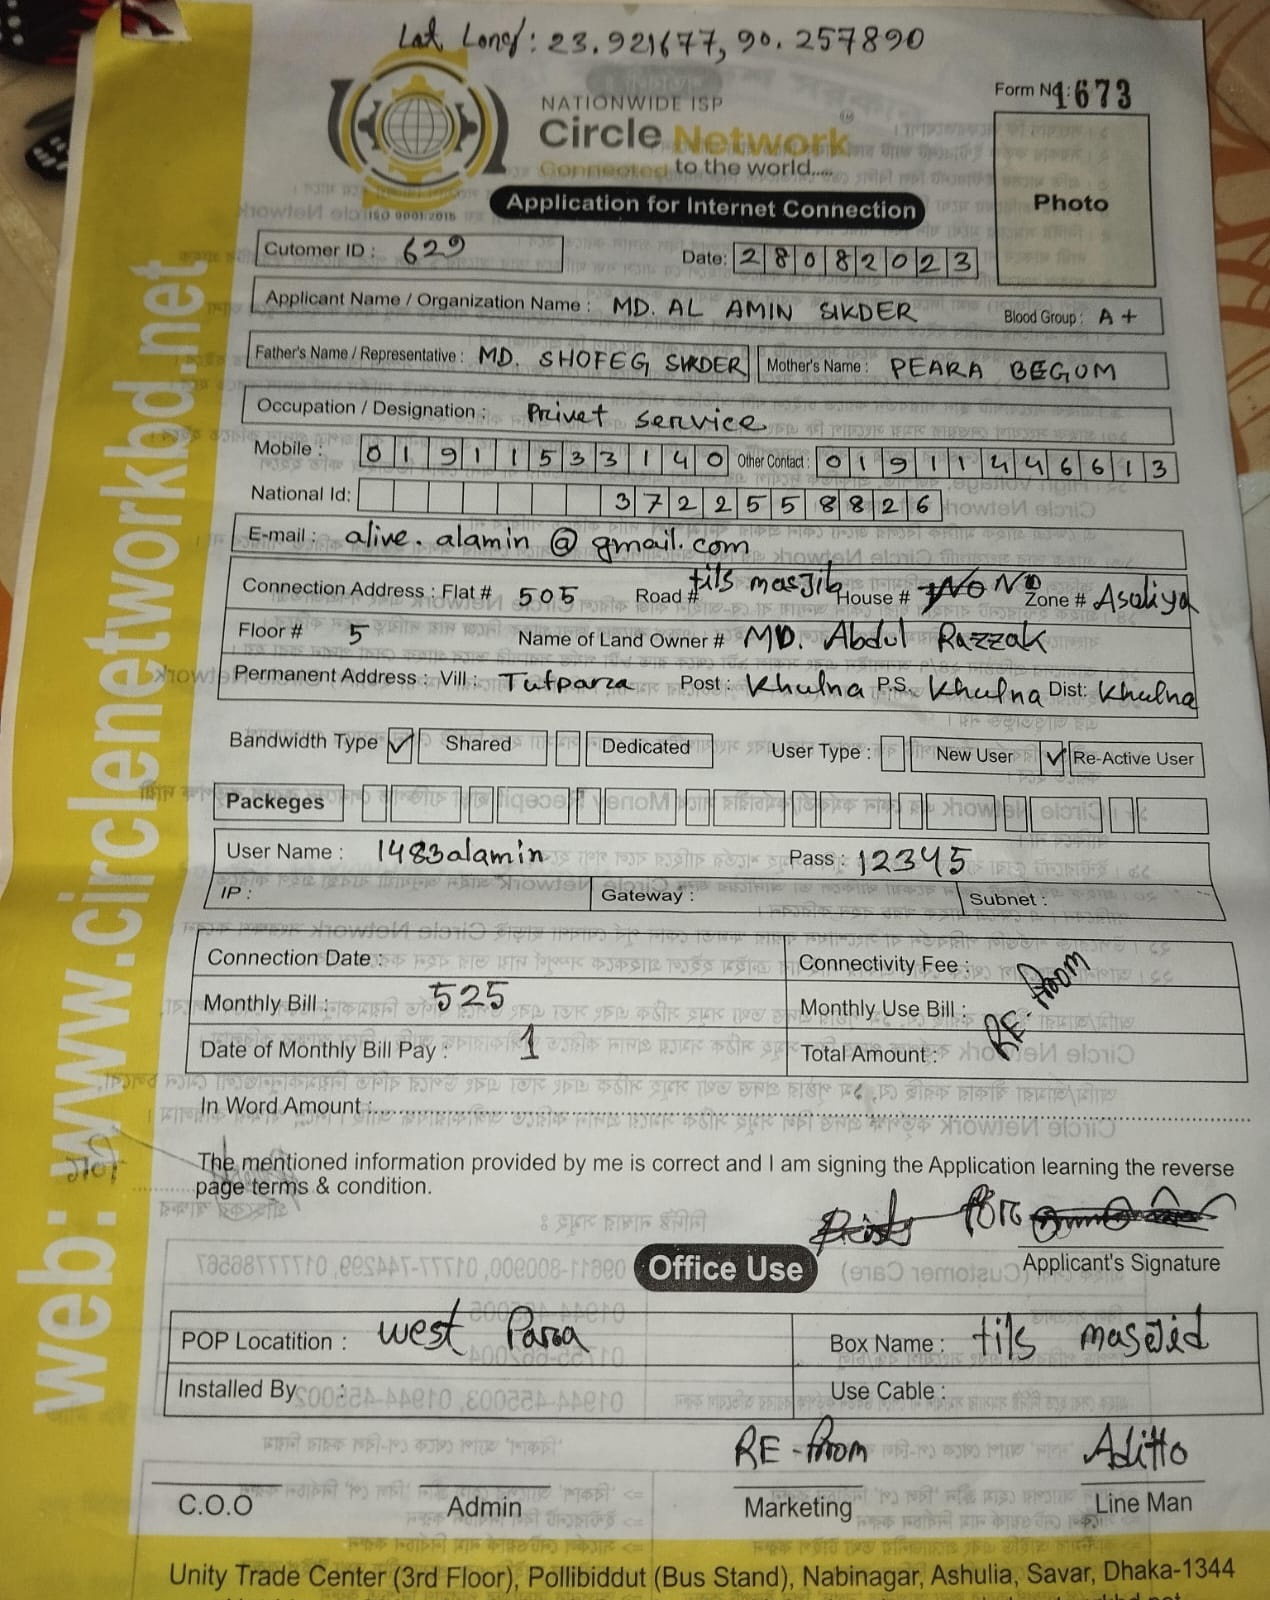 Lat Long: 23.921677, 90.257890
Form No: 1673
NATIONWIDE ISP
Circle Network
Connected to the world.....
ISO 9001:2015
Photo
Application for Internet Connection
Cutomer ID : 629 Date: 28082023
Applicant Name / Organization Name : MD. AL AMIN SIKDER Blood Group : A+
Father's Name / Representative : MD. SHOFEG SIKDER Mother's Name : PEARA BEGUM
Occupation / Designation : Privet service
Mobile : 01911533140 Other Contact : 01911446613
National Id: 3722558826
E-mail : alive.alamin@gmail.com
Connection Address : Flat # 505 Road # tils masjib House # NO Zone # Asaliya
Floor # 5 Name of Land Owner # MD. Abdul Razzak
Permanent Address : Vill : Tutpara Post : Khulna P.S. Khulna Dist: Khulna
Bandwidth Type ✓ Shared Dedicated User Type : New User ✓ Re-Active User
Packeges
User Name : 1483alamin Pass : 12345
IP : Gateway : Subnet :
Connection Date : Connectivity Fee :
Monthly Bill : 525 Monthly Use Bill : RE-
Date of Monthly Bill Pay : 1 Total Amount :
In Word Amount :
The mentioned information provided by me is correct and I am signing the Application learning the reverse
page terms & condition.
Applicant's Signature
Office Use
POP Locatition : west Para Box Name : tils masjid
Installed By : Use Cable :
RE- Aditto
C.O.O Admin Marketing Line Man
Unity Trade Center (3rd Floor), Pollibiddut (Bus Stand), Nabinagar, Ashulia, Savar, Dhaka-1344
web: www.circlenetworkbd.net